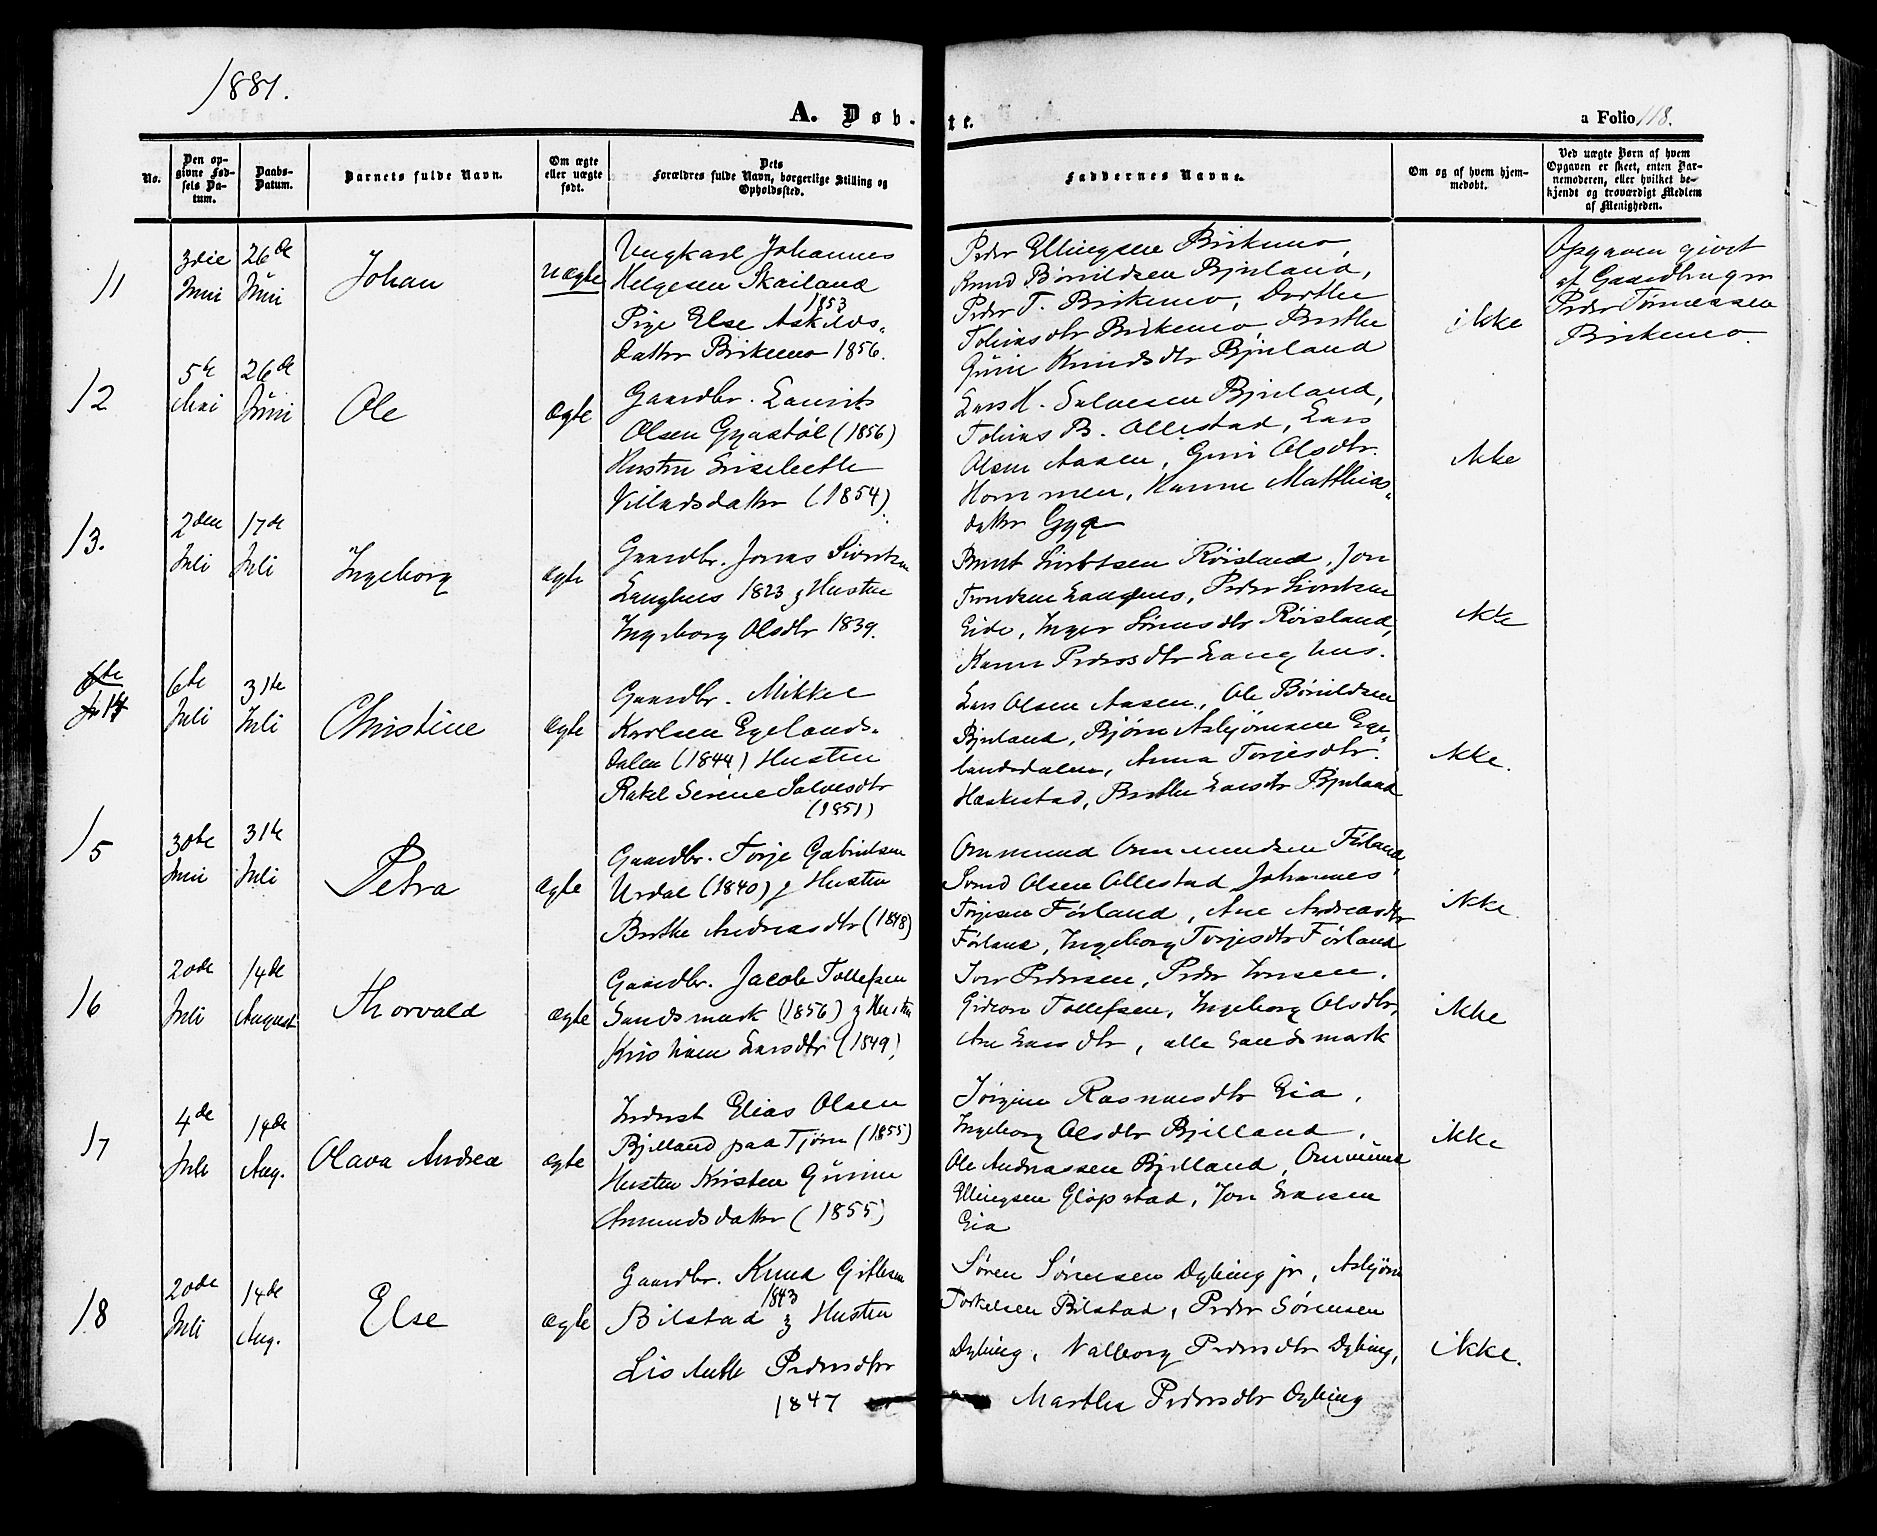 1881.
A. Døbte.
a Folio 118.
No.
Den opgivne Fødsels Datum.
Daabs-Datum.
Barnets fulde Navn.
Om ægte eller uægte født.
Dets Forældres fulde Navn, borgerlige Stilling og Opholdssted.
Faddernes Navne.
Om og af hvem hjemmedøbt.
Ved uægte Børn af hvem Opgaven er skeet, enten Barnemoderen, eller hvilket bekjendt og troværdigt Medlem af Menigheden.
11
3die Juni
26de Juni
Johan
uægte
Ungkarl Johannes
Helgesen Skailand
1853
Pige Else Askilds-
datter Birkemo 1856.
Peder Ellingsen Birkemo,
Knud Børuldsen Bjuland,
Peder T. Birkemo, Dorthe
Tobiasdtr Birkemo, Berthe
Guri Knudsdtr Bjuland
ikke
Opgaven givet
af Gaardbruger
Peder Tønnessen
Birkemo.
12
5te Mai
26de Juni
Ole
ægte
Gaardbr. Laurits
Olsen Gyastøl (1856)
Hustru Liselethe
Villadsdatter (1854).
Lars H. Salvesen Bjuland,
Tobias B. Ollestad, Lars
Olsen Aasen, Guri Olsdtr.
Hommen, Hanne Matthias-
datter Gya
ikke
13.
2den Juli
17de Juli
Ingeborg
ægte
Gaardbr. Jonas Sivertsen
Langhus 1823 & Hustru
Ingeborg Olsdtr 1839.
Bernt Sivertsen Røisland, Jon
Trondsen Langhus, Peder Sivertsen
Eide, Inger Sørensdtr Røisland,
Karen Pedersdtr Langhus.
ikke
14
6te Juli
31te Juli
Christine
ægte
Gaardbr. Mikkel
Karlsen Egelands-
dalen (1844) Hustru
Rakel Serene Salvesdtr
(1851)
Lars Olsen Aasen, Ole Børuldsen
Bjuland, Bjørn Asbjørnsen Ege-
landsdalen, Anna Torjesdtr.
Hæskestad, Berthe Larsdtr Bjuland
ikke.
15
30te Juni
31te Juli
Petra
ægte
Gaardbr. Torje Gabrielsen
Urdal (1840) & Hustru
Berthe Andreasdtr (1848)
Ommund Ommundsen Førland,
Svend Olsen Ollestad, Johannes
Torjesen Førland, Ane Andreasdtr
Førland, Ingeborg Torjesdtr Førland
ikke.
16
20de Juli
14de August
Thorvald
ægte
Gaardbr. Jacob Tollefsen
Sandsmark (1856) & Hustru
Kristiane Larsdtr (1849)
Iver Pedersen, Peder Jonsen,
Gideon Tollefsen, Ingeborg Olsdtr,
Ane Larsdtr, alle Sandsmark
ikke
17
4de Juli
14de Aug.
Olava Andrea
ægte
Inderst Elias Olsen
Bjelland paa Tjørn (1855)
Hustru Kirsten Gurine
Amundsdatter (1855)
Jørgine Rasmusdtr Eia,
Ingeborg Olsdtr Bjelland,
Ole Andreassen Bjelland, Ommund
Ellingsen Gløpstad, Jon Larsen
Eia
ikke
18
20de Juli
14de Aug.
Else
ægte
Gaardbr. Knud Gitlesen
1843
Bilstad & Hustru
Lisbeth Pedersdtr
1847
Søren Sørensen Dybing jr, Asbjørn
Torkelsen Bilstad, Peder Sørensen
Dybing, Valborg Pedersdtr Dybing,
Marthe Pedersdtr Dybing
ikke.